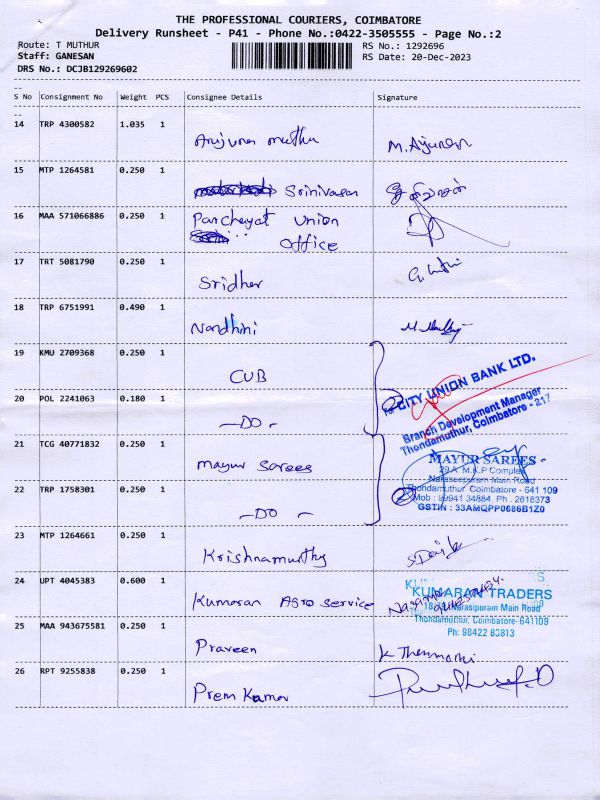 THE PROFESSIONAL COURIERS, COIMBATORE
Delivery Runsheet - P41 - Phone No.:0422-3505555 - Page No.:2
Route: T MUTHUR
RS No.: 1292696
Staff: GANESAN
RS Date: 20-Dec-2023
DRS No.: DCJB129269602
S No Consignment No Weight PCS Consignee Details Signature
14 TRP 4300582 1.035 1
Arujuna muthu M. Arjunan
15 MTP 1264581 0.250 1
Srinivasan
16 MAA 571066886 0.250 1 Panchayat union
office
17 TRT 5081790 0.250 1
Sridher
18 TRP 6751991 0.490 1
Nandhini
19 KMU 2709368 0.250 1
CUB
For CITY UNION BANK LTD.
20 POL 2241063 0.180 1
—DO-
Branch Development Manager
Thondamuthur, Coimbatore - 217
21 TCG 40771832 0.250 1
Mayur Sarees
MAYUR SAREES
29 A, M.K.P Complex
Naraseepuram Main Road
22 TRP 1758301 0.250 1
—DO —
Thondamuthur, Coimbatore - 641 109
Mob : 99941 34884 Ph : 2618373
GSTIN : 33AMQPP0686B1Z0
23 MTP 1264661 0.250 1
Krishnamurthy
24 UPT 4045383 0.600 1
Kumaran Agro service
KUMARAN TRADERS
Narasipuram Main Road
Thondamuthur, Coimbatore- 641109
Ph: 98422 83813
25 MAA 943675581 0.250 1
Praveen
26 RPT 9255838 0.250 1
Prem Kumar